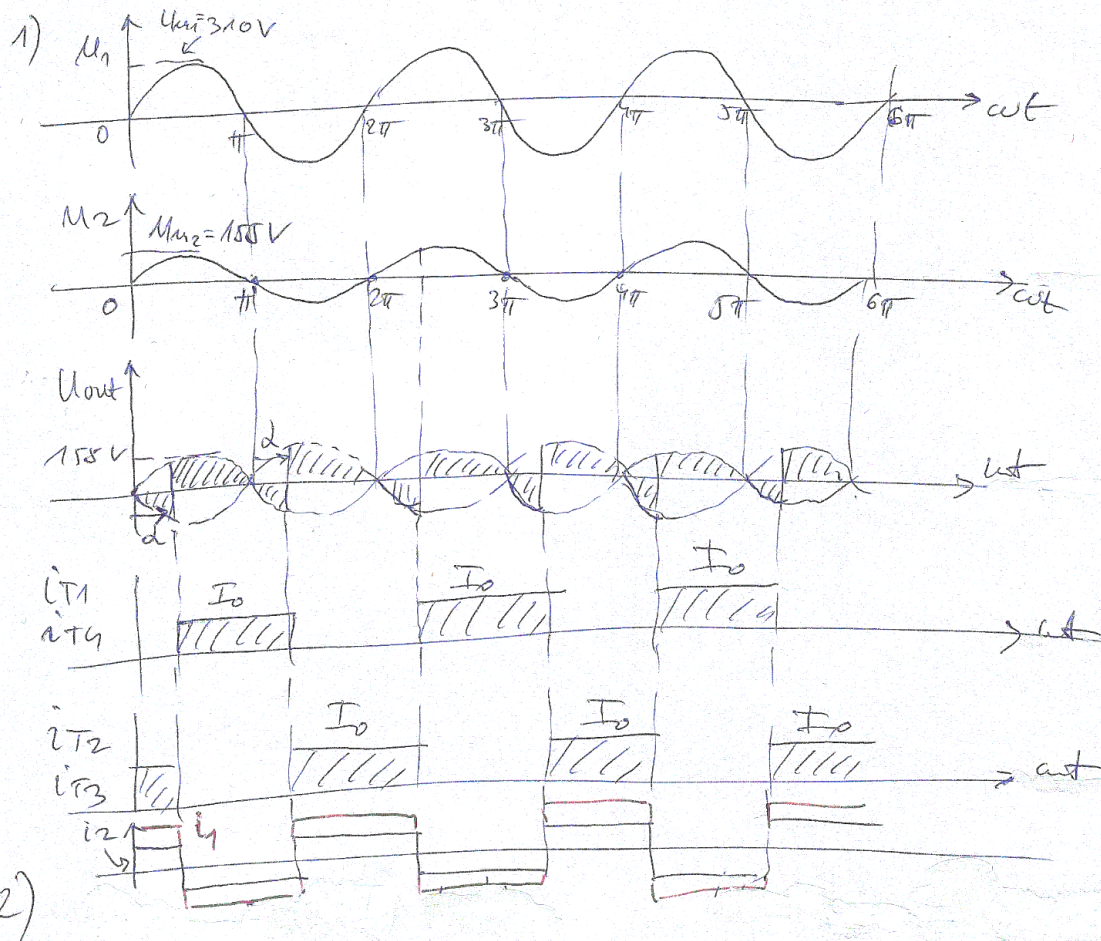 1)
Um1=310V
u1
0
π
2π
3π
4π
5π
6π
ωt
u2
Um2=155V
0
π
2π
3π
4π
5π
6π
ωt
Uout
155V
α
α
ωt
iT1
iT4
I0
I0
I0
ωt
iT2
iT3
I0
I0
I0
ωt
i2
i1
2)